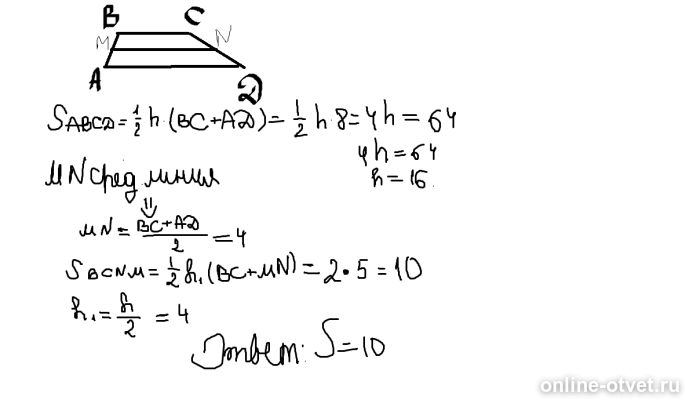 B C
M N
A D
S ABCD = 1/2 h · (BC + AD) = 1/2 h · 8 = 4h = 64
4h = 64
h = 16
MN сред линия
⇓
MN = (BC + AD)/2 = 4
S BCNM = 1/2 h₁ (BC + MN) = 2 · 5 = 10
h₁ = h/2 = 4
Ответ: S = 10
online-otvet.ru